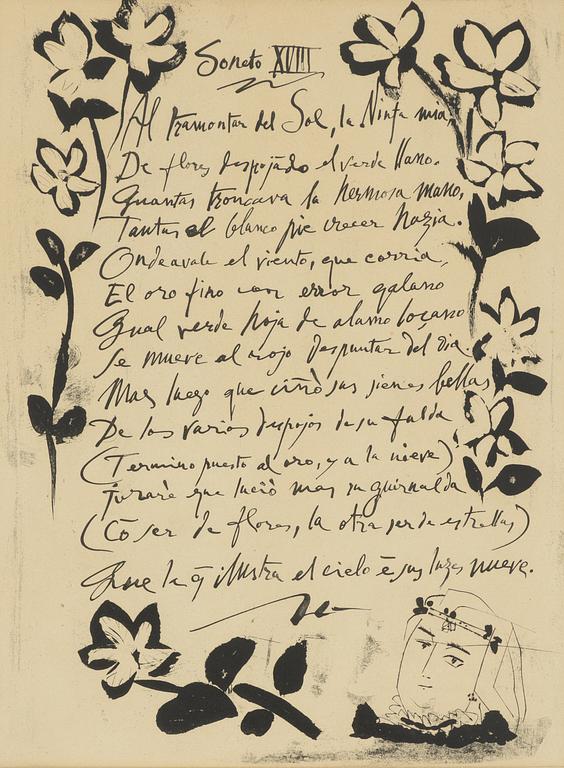 Soneto XVIII
Al tramontar del Sol, la Ninfa mia
De flores despojado el verde llano.
Quantas troncava la hermosa mano,
Tantas el blanco pie crecer hazia.
Ondeavale el viento, que corria,
El oro fino con error galano
Qual verde hoja de alamo loçano
Se mueve al rojo despuntar del dia
Mas luego que ciñò sus sienes bellas
De los varios despojos de su falda
(Termino puesto al oro, y a la nieve)
Jurarè que luciò mas su guirnalda
(Cõ ser de flores, la otra ser de estrellas)
Que la q̃ illustra el cielo ẽ sus luzes nueve.